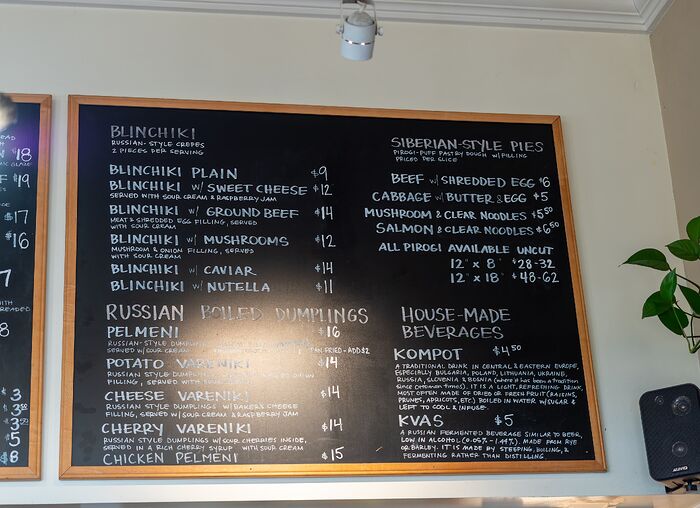 18
19
$17
$16
$8
BLINCHIKI
RUSSIAN-STYLE CREPES
2 PIECES PER SERVING
BLINCHIKI PLAIN $9
BLINCHIKI W/ SWEET CHEESE $12
SERVED WITH SOUR CREAM & RASPBERRY JAM
BLINCHIKI W/ GROUND BEEF $14
MEAT & SHREDDED EGG FILLING, SERVED
WITH SOUR CREAM
BLINCHIKI W/ MUSHROOMS $12
MUSHROOM & ONION FILLING, SERVED
WITH SOUR CREAM
BLINCHIKI W/ CAVIAR $14
BLINCHIKI W/ NUTELLA $11
RUSSIAN BOILED DUMPLINGS
PELMENI $16
RUSSIAN-STYLE DUMPLINGS
SERVED W/ SOUR CREAM PAN FRIED - ADD $2
POTATO VARENIKI $14
RUSSIAN STYLE DUMPLINGS
FILLING, SERVED WITH SOUR
CHEESE VARENIKI $14
RUSSIAN STYLE DUMPLINGS W/ BAKERS CHEESE
FILLING, SERVED W/ SOUR CREAM & RASPBERRY JAM
CHERRY VARENIKI $14
RUSSIAN STYLE DUMPLINGS W/ SOUR CHERRIES INSIDE,
SERVED IN A RICH CHERRY SYRUP WITH SOUR CREAM
CHICKEN PELMENI $15
SIBERIAN-STYLE PIES
PIROGI-PUFF PASTRY DOUGH W/ FILLING
PRICED PER SLICE
BEEF W/ SHREDDED EGG $6
CABBAGE W/ BUTTER & EGG $5
MUSHROOM & CLEAR NOODLES $5.50
SALMON & CLEAR NOODLES $6.50
ALL PIROGI AVAILABLE UNCUT
12" x 8" $28-32
12" x 18" $48-62
HOUSE-MADE
BEVERAGES
KOMPOT $4.50
A TRADITIONAL DRINK IN CENTRAL & EASTERN EUROPE,
ESPECIALLY BULGARIA, POLAND, LITHUANIA, UKRAINE,
RUSSIA, SLOVENIA & BOSNIA (where it has been a tradition
since ottoman times). IT IS A LIGHT, REFRESHING DRINK,
MOST OFTEN MADE OF DRIED OR FRESH FRUIT (RAISINS,
PRUNES, APRICOTS, ETC) BOILED IN WATER W/ SUGAR &
LEFT TO COOL & INFUSE.
KVAS $5
A RUSSIAN FERMENTED BEVERAGE SIMILAR TO BEER,
LOW IN ALCOHOL (0.05% - 1.44%). MADE FROM RYE
OR BARLEY. IT IS MADE BY STEEPING, BOILING, &
FERMENTING RATHER THAN DISTILLING.